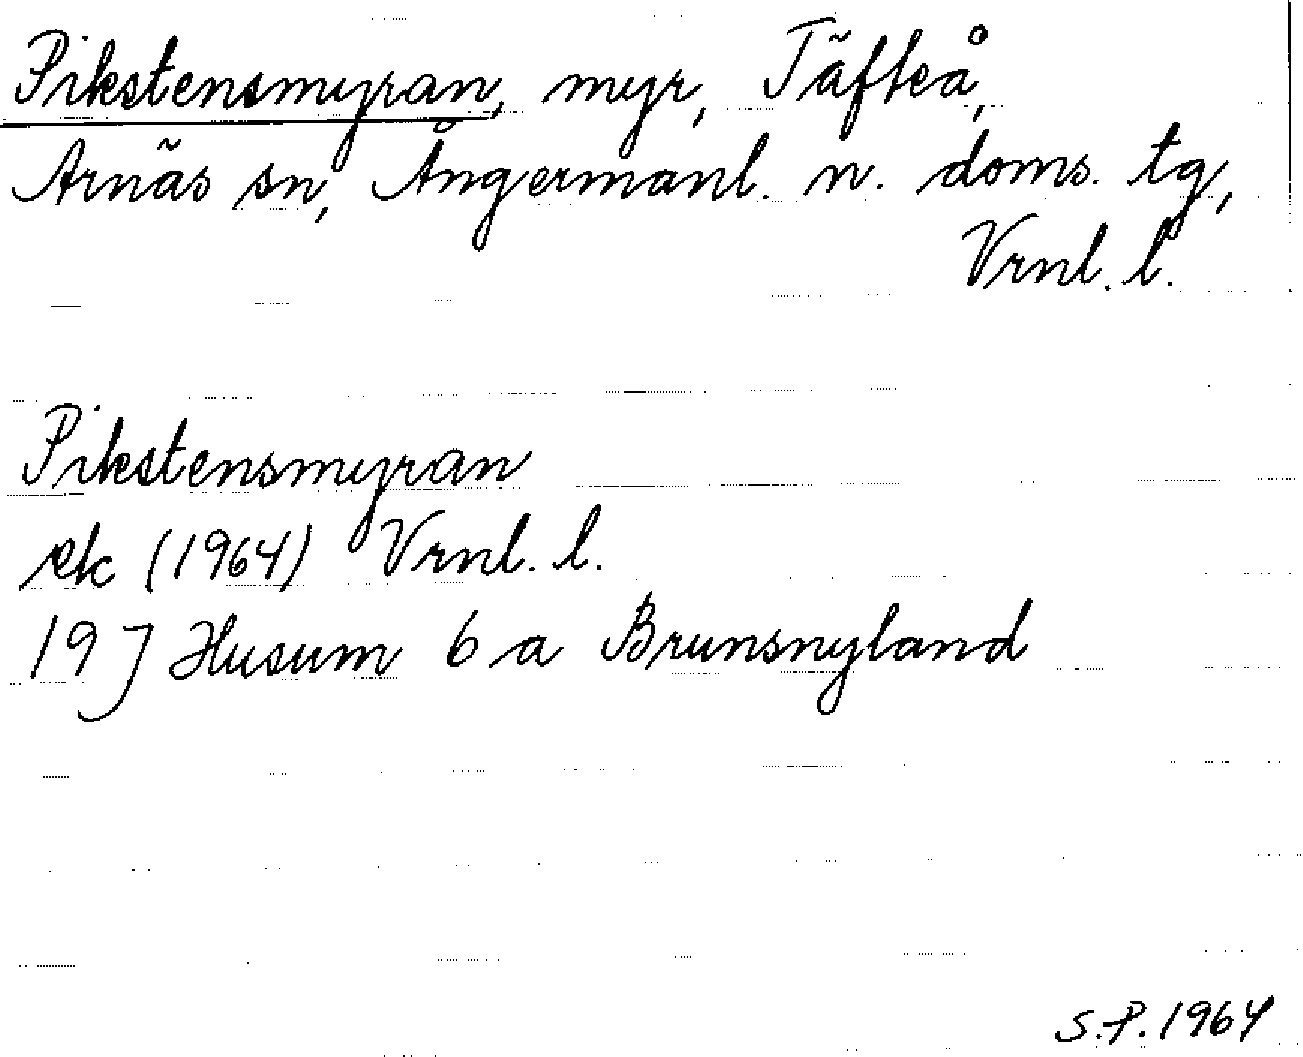 Pikstensmyran, myr, Täfteå,
Arnäs sn, Ångermanl. n. doms. tg,
Vrnl. l.
Pikstensmyran
ek (1964) Vrnl. l.
19 J Husum 6 a Brunsnyland
S.P. 1964